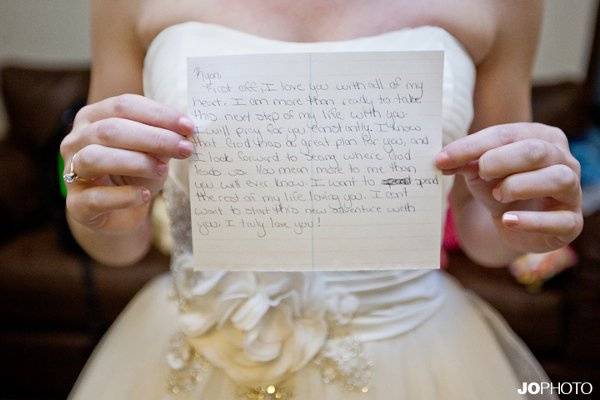 Ryan,
First off, I love you with all of my
heart. I am more than ready to take
this next step of my life with you.
I will pray for you constantly. I know
that God has a great plan for you, and
I look forward to seeing where God
leads us. You mean more to me than
you will ever know. I want to spend
the rest of my life loving you. I can't
want to start this new adventure with
you. I truly love you!
JOPHOTO